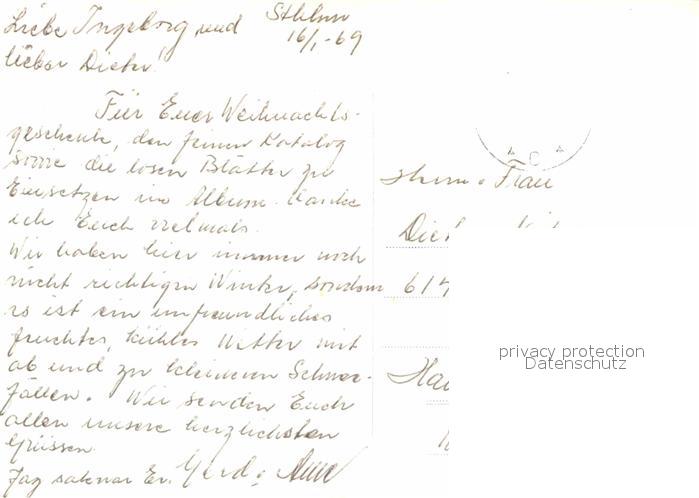 Sthlm
16/1-69
Liebe Ingeborg und
lieber Dieter!
Für Euer Weihnachts-
geschenk, den feinen Katalog
sowie die losen Blätter zu
Einsetzen im Album danke
ich Euch vielmals.
Wir haben hier immer noch
nicht richtigen Winter, sondern
es ist ein unfreundliches
feuchtes, kühles Wetter mit
ab und zu kleineren Schnee-
fällen. Wir senden Euch
allen unsere herzlichsten
Grüssen
Jag saknar Er. Gerd &
Herrn & Frau
Die
617
Ha
privacy protection
Datenschutz